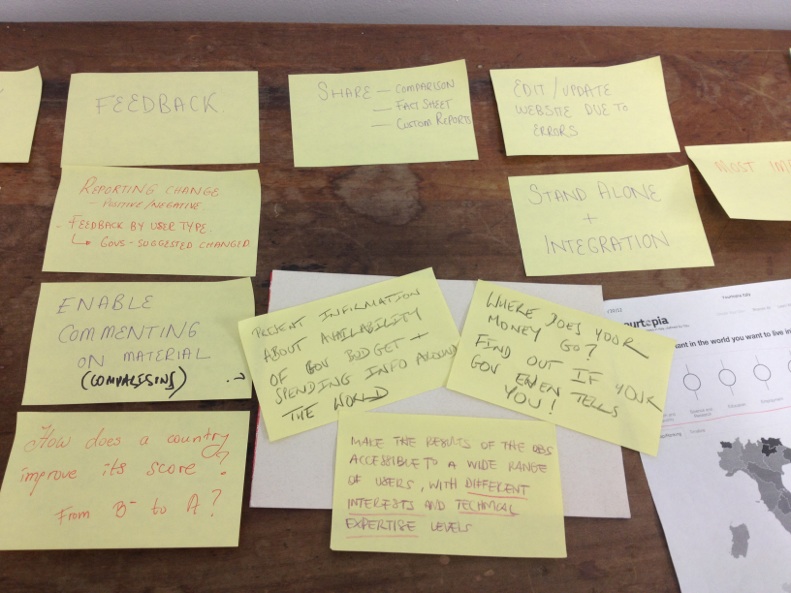 FEEDBACK.
SHARE — COMPARISON
— FACT SHEET
— CUSTOM REPORTS
EDIT/UPDATE
WEBSITE DUE TO
ERRORS
REPORTING CHANGE
- POSITIVE/NEGATIVE
- FEEDBACK BY USER TYPE.
↳ GOVS-SUGGESTED CHANGED
STAND ALONE
+
INTEGRATION
MOST
ENABLE
COMMENTING
ON MATERIAL
(COMPARISINS)
PRESENT INFORMATION
ABOUT AVAILABILITY
OF GOV BUDGET +
SPENDING INFO AROUND
THE WORLD
WHERE DOES YOUR
MONEY GO?
FIND OUT IF YOUR
GOV EVEN TELLS
YOU!
How does a country
improve its score?
From B- to A?
MAKE THE RESULTS OF THE OBS
ACCESSIBLE TO A WIDE RANGE
OF USERS, WITH DIFFERENT
INTERESTS AND TECHNICAL
EXPERTISE LEVELS
urtopia
in the world you want to live in